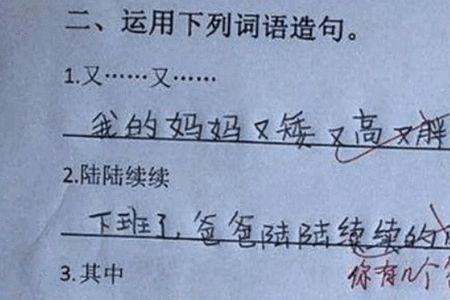 二、运用下列词语造句。
1.又……又……
我的妈妈又矮又高又胖
2.陆陆续续
下班了,爸爸陆陆续续的
3.其中
你有几个